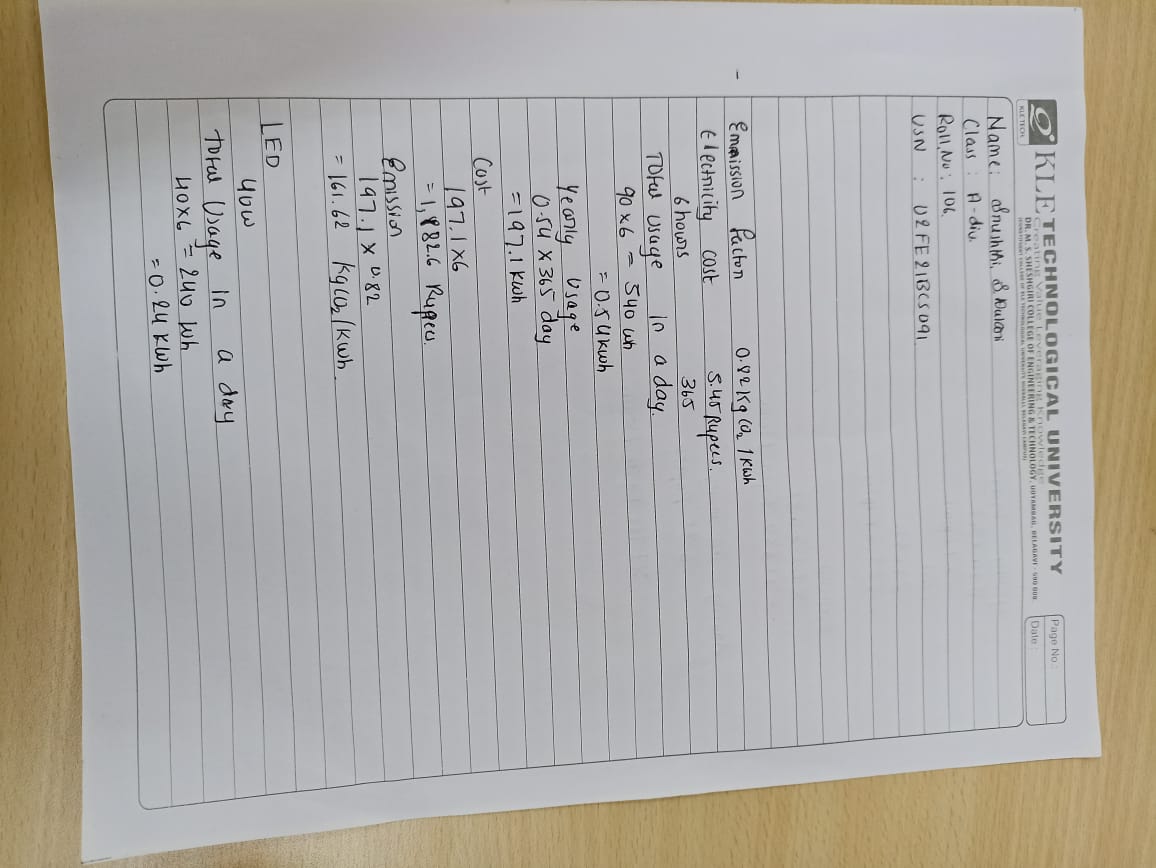 KLE TECHNOLOGICAL UNIVERSITY
Creating Value Leveraging Knowledge
KLE TECH.
DR. M. S. SHESHGIRI COLLEGE OF ENGINEERING & TECHNOLOGY, UDYAMBAG, BELAGAVI - 590 008
Page No.:
Date :
Name:
Class : A-div.
Roll No: 106
USN : 02FE21BCS091
Emission factor 0.82 Kg CO2 / Kwh
Electricity cost 5.45 Rupees.
6 hours 365
Total usage in a day.
90 x 6 = 540 wh
= 0.54 kwh
Yearly Usage
0.54 x 365 day
= 197.1 kwh
Cost
197.1 x 6
= 1,182.6 Rupees.
Emission
197.1 x 0.82
= 161.62 kg CO2 / kwh.
LED
40w
Total Usage in a day
40 x 6 = 240 wh
= 0.24 kwh